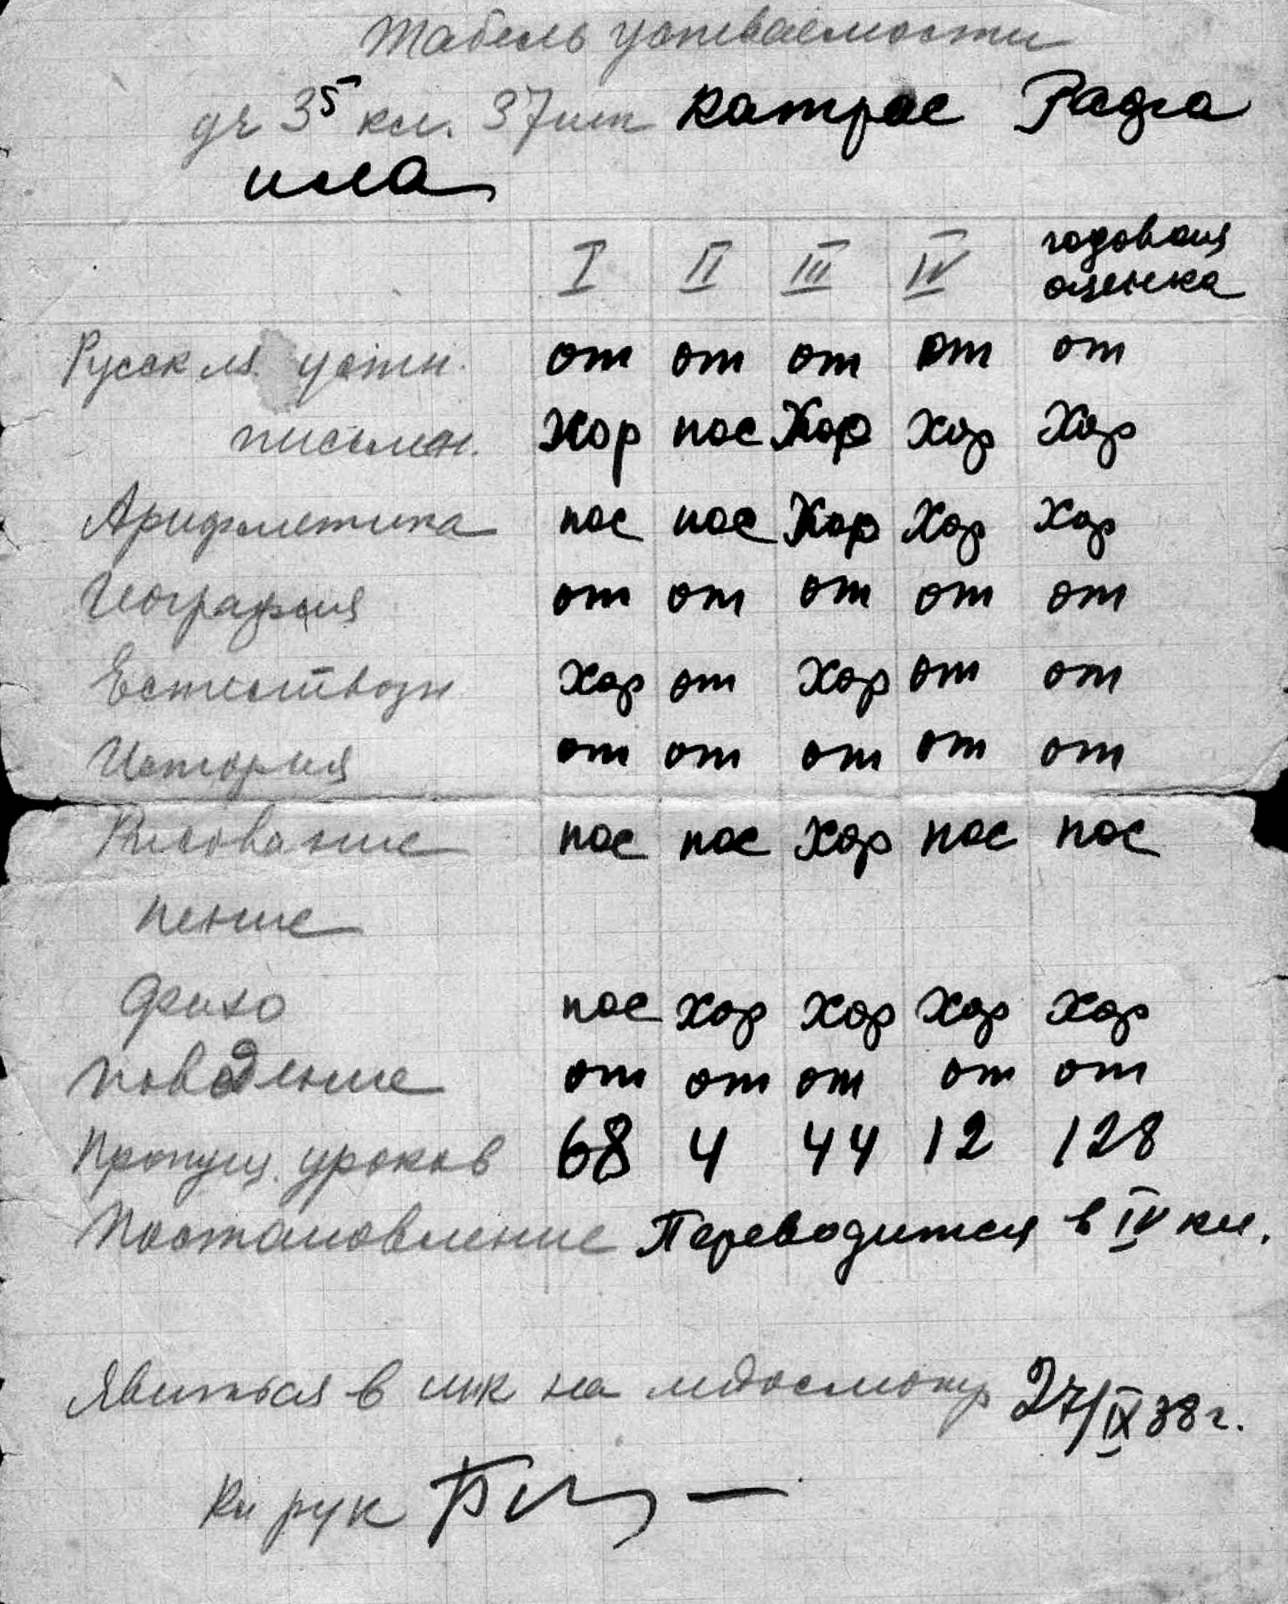 Табель успеваемости
уч 3⁵ кл. 37 шк Катрас Радга
ила
I II III IV годовая
оценка
Русск яз устн. от от от от от
письмен. Хор пос Хор Хор Хор
Арифметика пос пос Хор Хор Хор
География от от от от от
Естествозн Хор от Хор от от
История от от от от от
Рисование пос пос Хор пос пос
пение
Физо пос Хор Хор Хор Хор
поведение от от от от от
Пропущ. уроков 68 4 44 12 128
Постановление Переводится в IV кл.
Явиться в шк на медосмотр 27/IX 38 г.
Кл рук